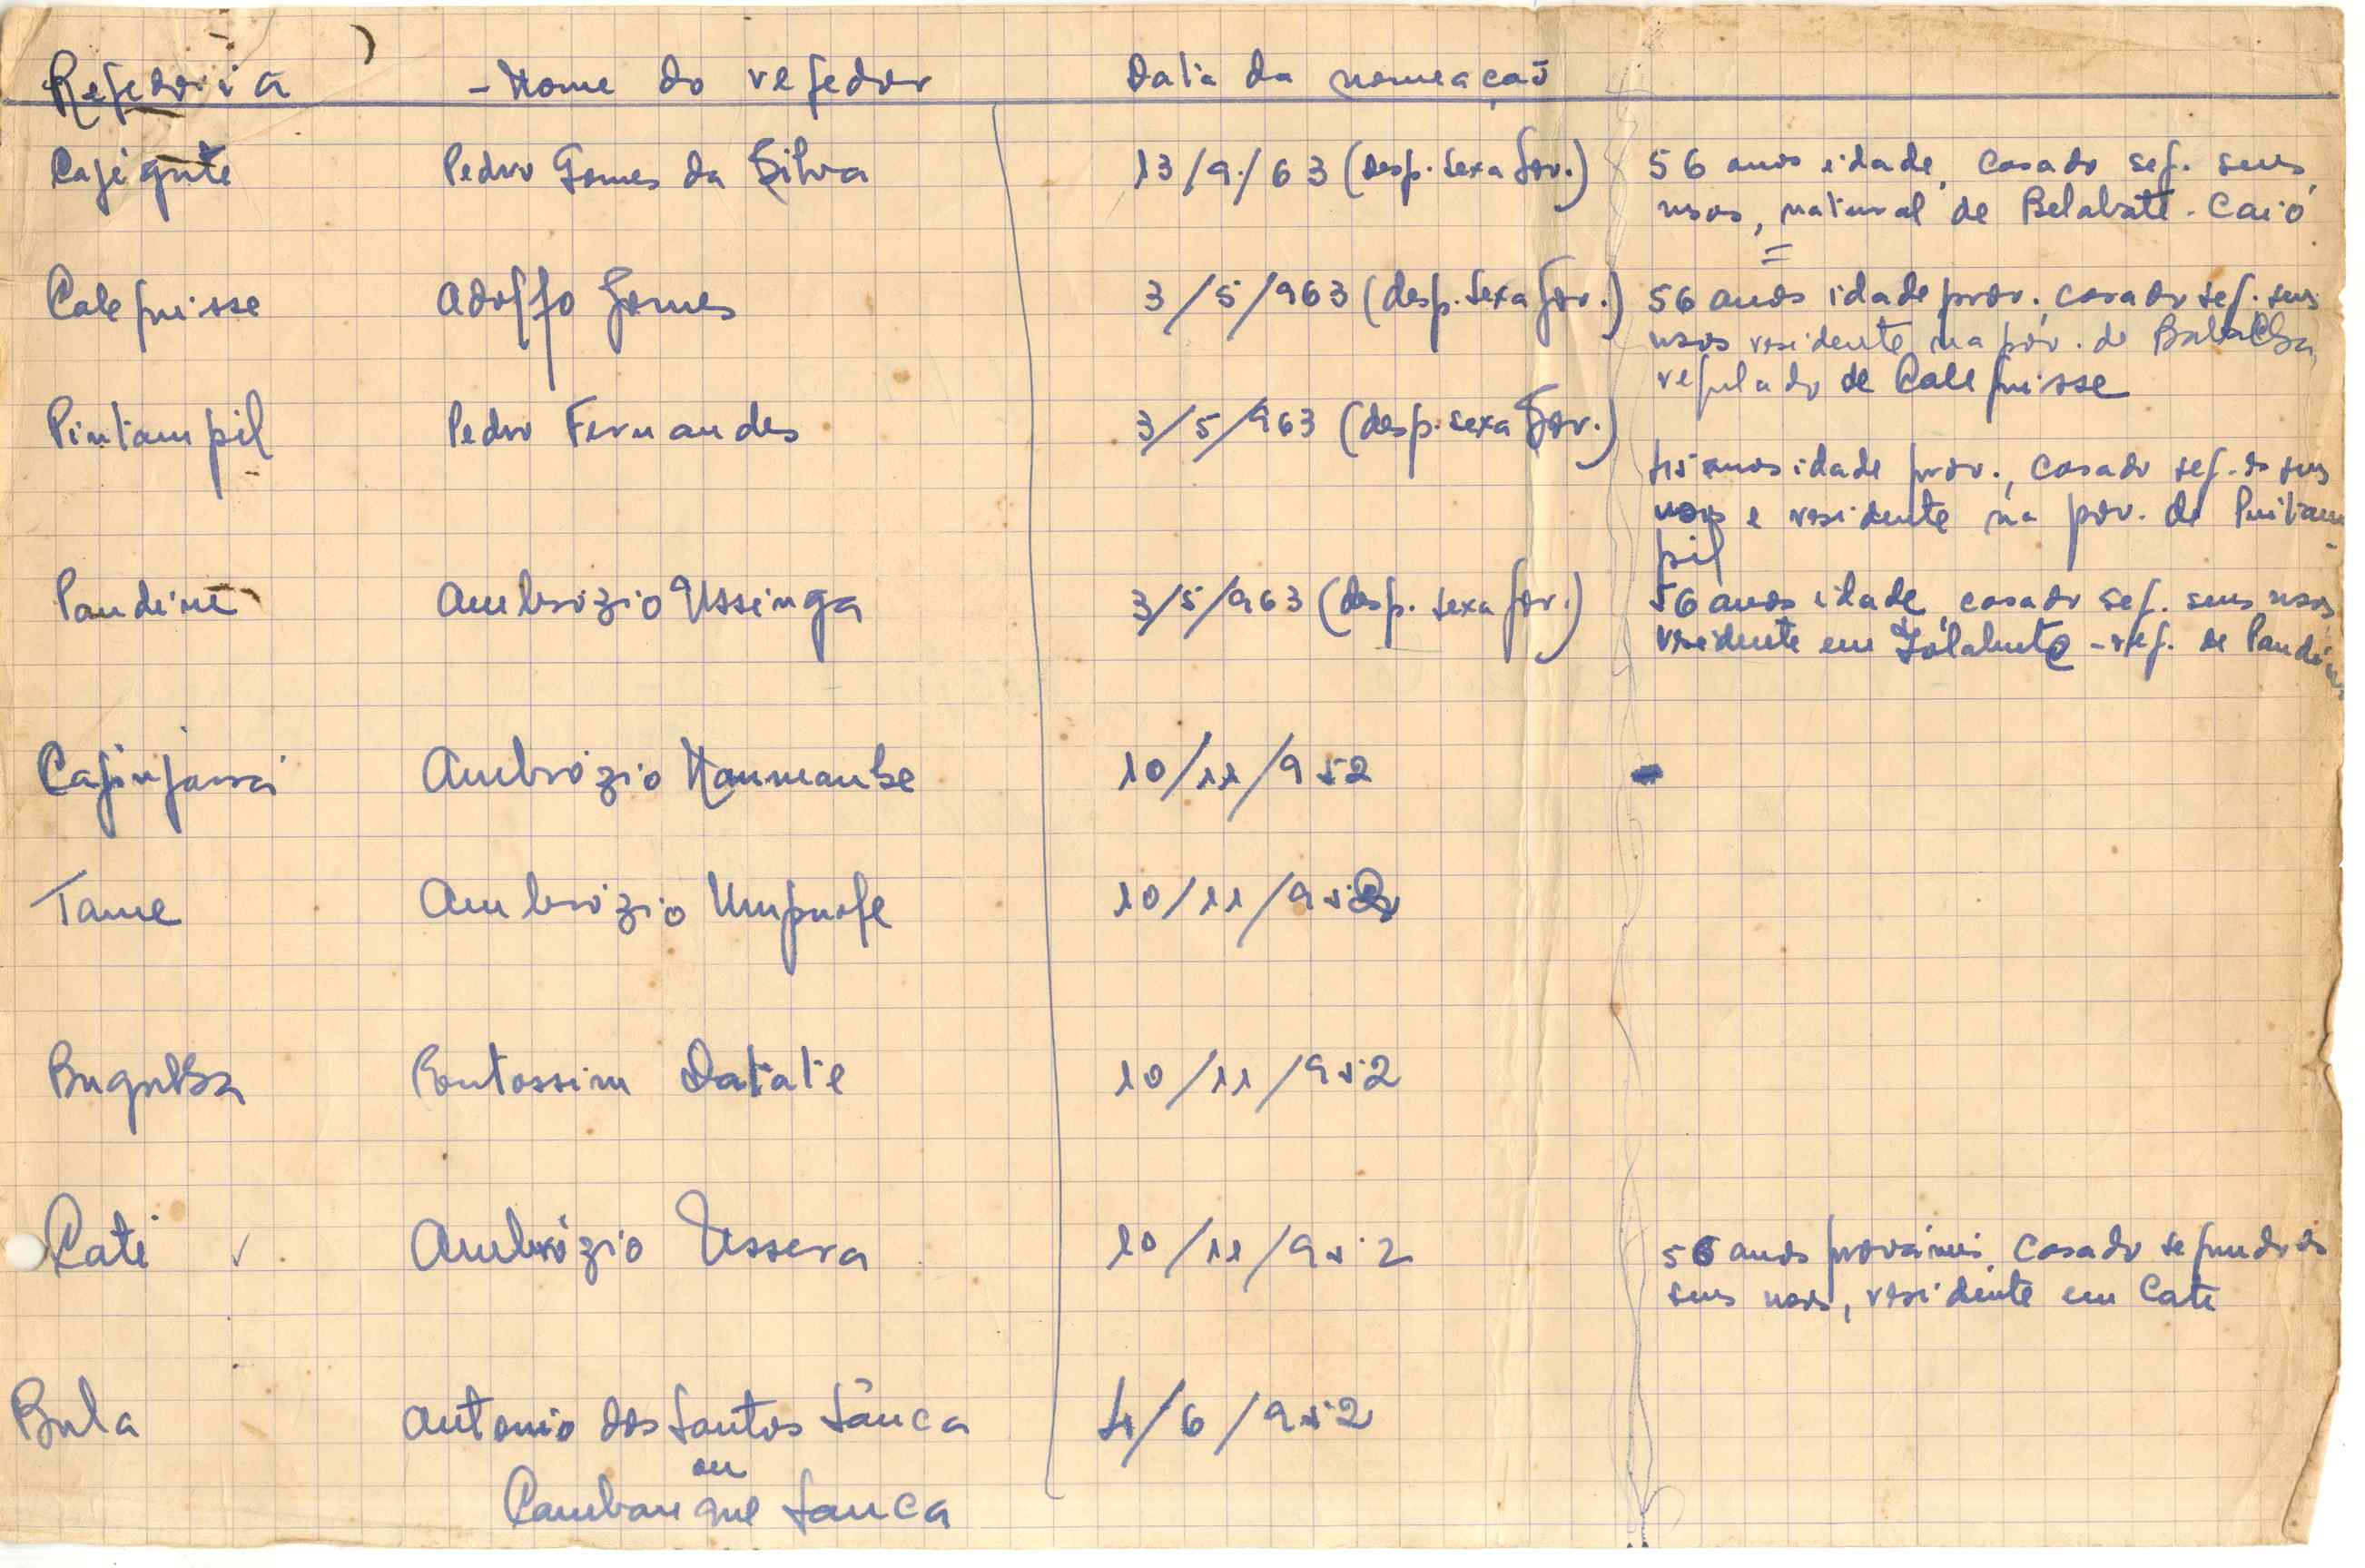 Regedoria - Nome do regedor Data da nomeação
Cajegute Pedro Gomes da Silva 13/9/63 (desp. sexa Gov.) 56 anos idade, casado seg. seus
usos, natural de Belabate - Caió
Calequisse Adolfo Gomes 3/5/963 (desp. sexa Gov.) 56 anos idade prov., casado seg. seus
usos residente na pov. de
regulado de Calequisse
Pintampil Pedro Fernandes 3/5/963 (desp. sexa Gov.)
45 anos idade prov., casado seg. os seus
usos e residente na pov. de Pintam
pil
Pandim Ambrozio Ussinga 3/5/963 (desp. sexa Gov.) 56 anos idade, casado seg. seus usos,
residente em - reg. de Pandim
Ambrózio 10/11/952 -
Tame Ambrózio 10/11/952
Datate 10/11/952
Cati Ambrózio Ussera 10/11/952 56 anos casado segundo os
seus usos, residente em Cati
Bula Antonio dos Santos Sanca 4/6/952
ou
Cambanque Sanca